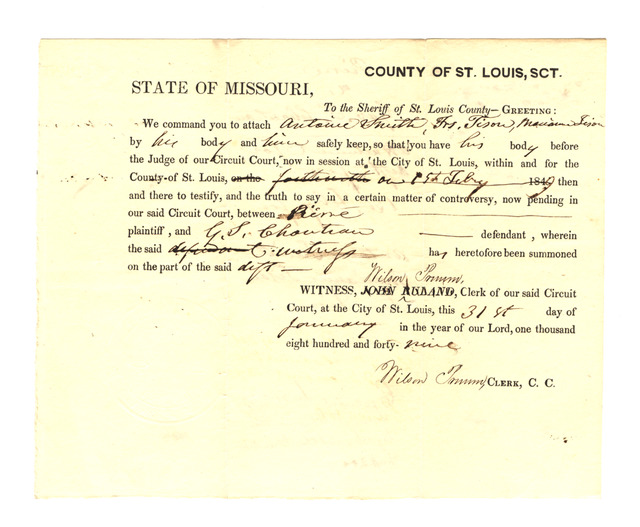 COUNTY OF ST. LOUIS, SCT.
STATE OF MISSOURI,
To the Sheriff of St. Louis County—GREETING:
We command you to attach Antoine Smith, Frs. Tison, Mariann Tison
by his body and him safely keep, so that you have his body before
the Judge of our Circuit Court, now in session at the City of St. Louis, within and for the
County of St. Louis, on the forthwith on 1849 then
and there to testify, and the truth to say in a certain matter of controversy, now pending in
our said Circuit Court, between Pierre
plaintiff, and G. S. Chouteau defendant, wherein
the said defendant witness has heretofore been summoned
on the part of the said deft
Wilson Primm,
WITNESS, JOHN RULAND, Clerk of our said Circuit
Court, at the City of St. Louis, this 31st day of
January in the year of our Lord, one thousand
eight hundred and forty-nine
Wilson Primm, CLERK, C. C.